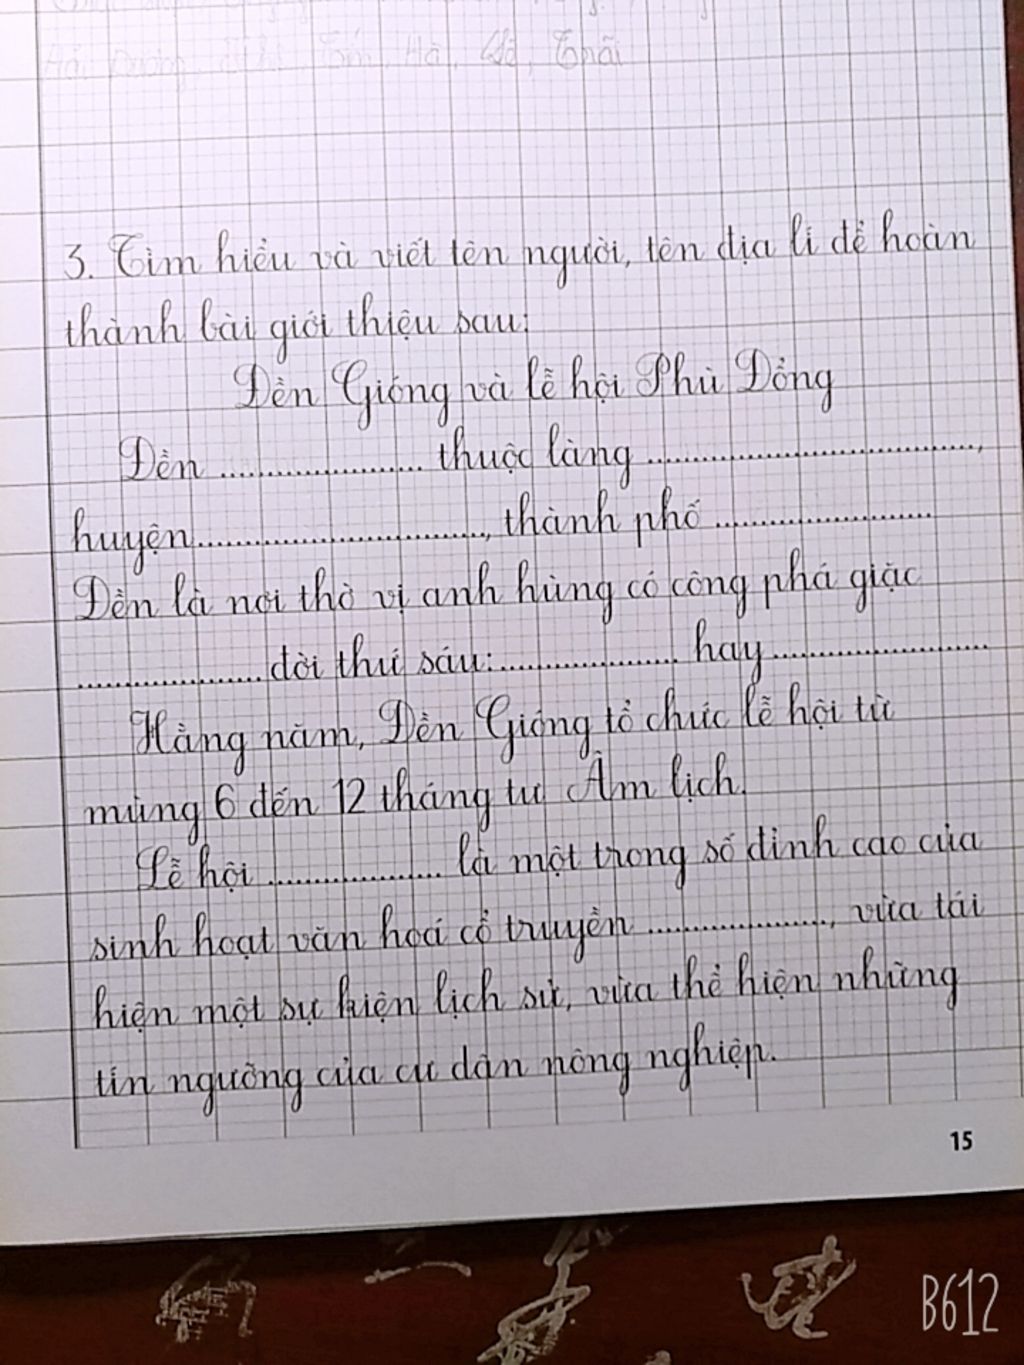 Hải Dương, Tố Hà, Thái
3. Tìm hiểu và viết tên người, tên địa lí để hoàn
thành bài giới thiệu sau:
Đền Gióng và lễ hội Phù Đổng
Đền .................... thuộc làng ....................................,
huyện................................, thành phố ........................
Đền là nơi thờ vị anh hùng có công phá giặc
.................... đời thứ sáu:.................... hay........................
Hằng năm, Đền Gióng tổ chức lễ hội từ
mùng 6 đến 12 tháng tư Âm lịch.
Lễ hội .................... là một trong số đỉnh cao của
sinh hoạt văn hoá cổ truyền ...................., vừa tái
hiện một sự kiện lịch sử, vừa thể hiện những
tín ngưỡng của cư dân nông nghiệp.
15
B612